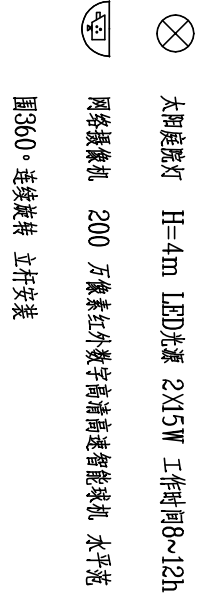 太阳庭院灯 H=4m LED光源 2X15W 工作时间8~12h
网络摄像机 200 万像素红外数字高清高速智能球机 水平范
围360°连续旋转 立杆安装